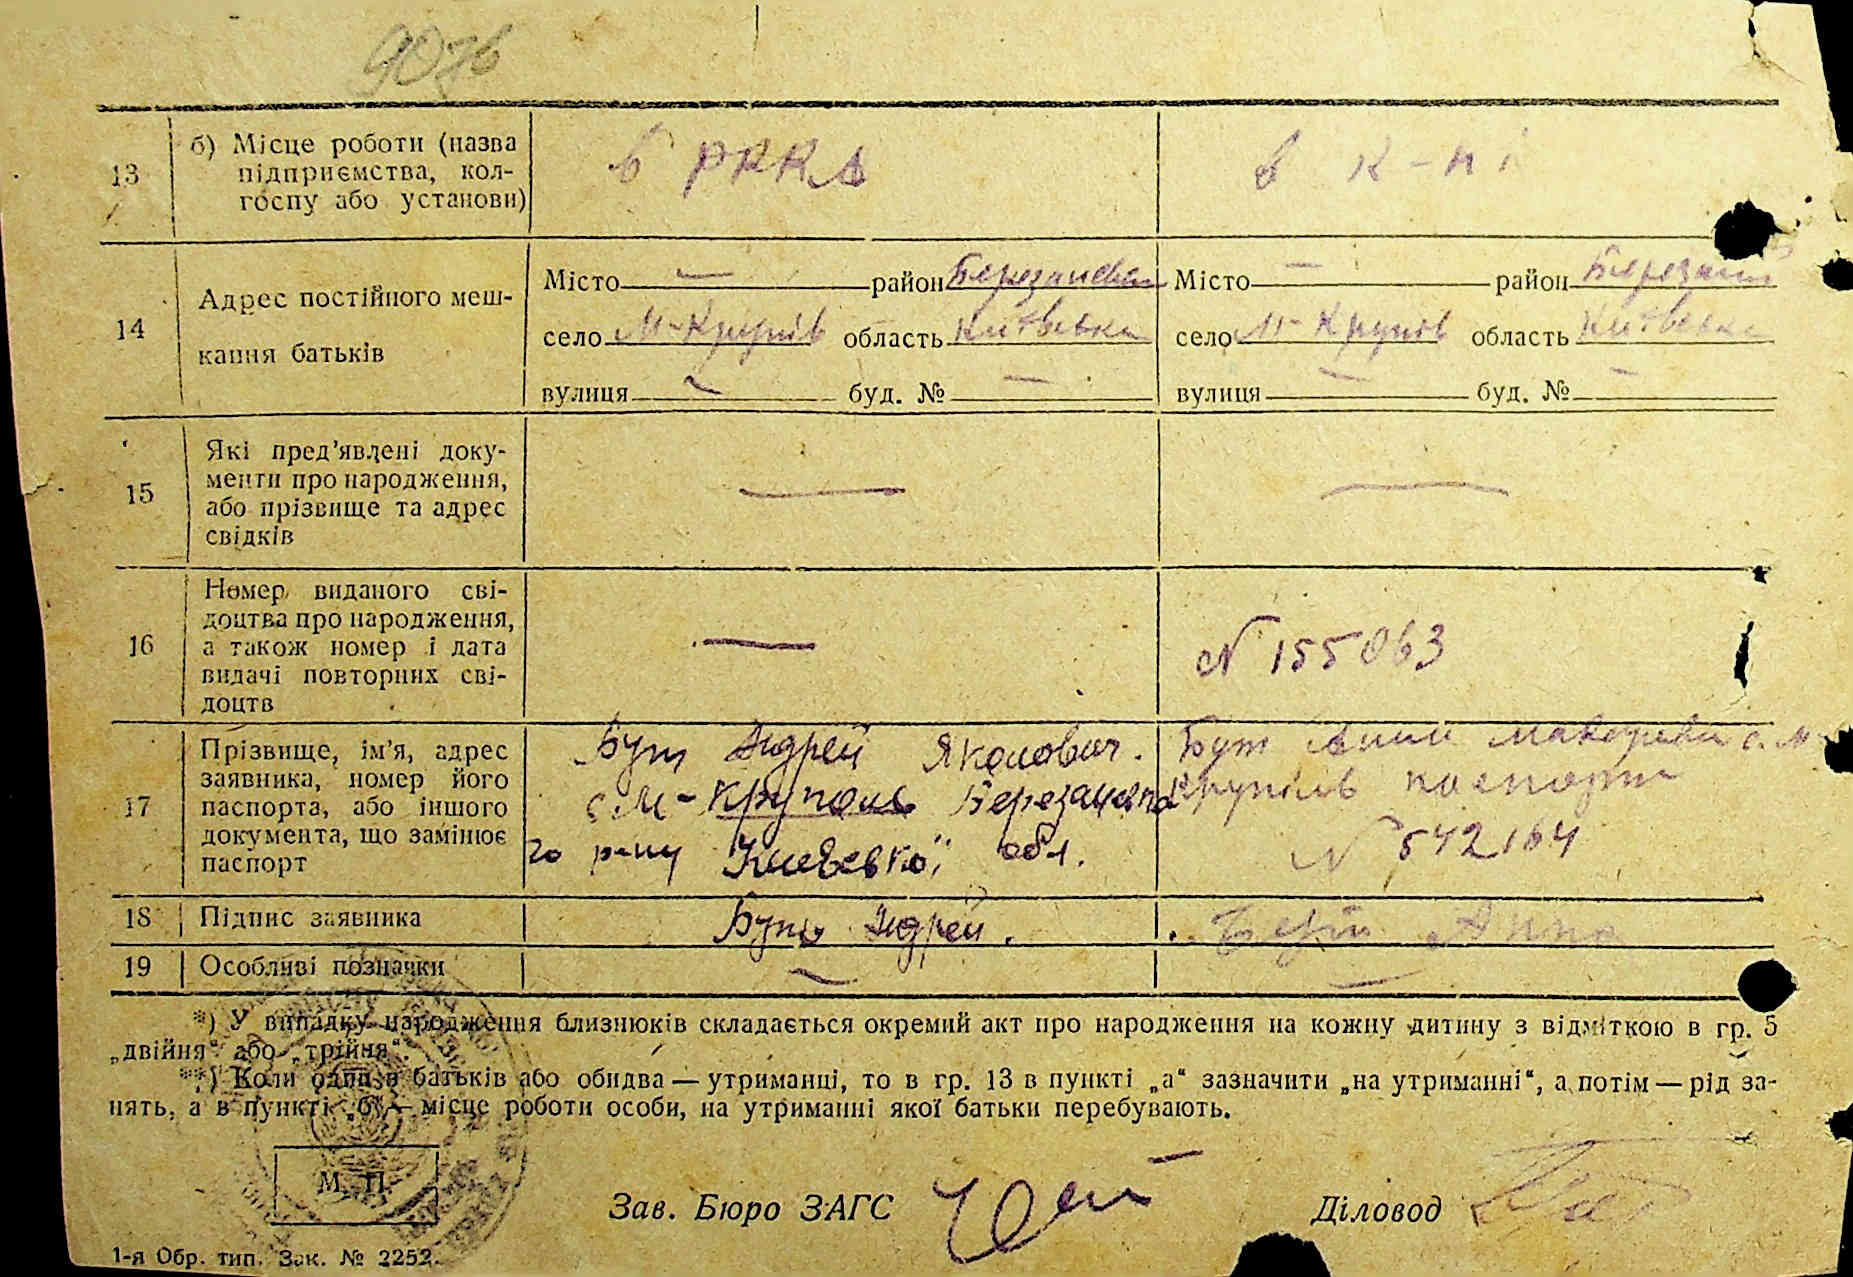 907б
13 б) Місце роботи (назва підприємства, колгоспу або установи) в РККА в к-пі
підприємства, кол-
госпу або установи)
14 Адрес постійного меш-
кання батьків
Місто — район Березанський Місто — район Березанс
село М-Крупіль область Київська село М-Крупіль область Київська
вулиця — буд. № — вулиця — буд. № —
15 Які пред'явлені доку-
менти про народження,
або прізвище та адрес
свідків
— —
16 Номер виданого сві-
доцтва про народження,
а також номер і дата
видачі повторних сві-
доцтв
— № 155063
17 Прізвище, ім'я, адрес
заявника, номер його
паспорта, або іншого
документа, що замінює
паспорт
Бут Андрей Якович.
с. М-Круполь Березансько
го р-ну Киевської обл.
Бут Анна с. М-
Крупіль паспорт
№ 542164
18 Підпис заявника Бут Андрей. Бут Анна
19 Особливі позначки — —
*) У випадку народження близнюків складається окремий акт про народження на кожну дитину з відміткою в гр. 5
„двійня“ або „трійня“.
**) Коли один з батьків або обидва — утриманці, то в гр. 13 в пункті „а“ зазначити „на утриманні“, а потім — рід за-
нять, а в пункті „б“ — місце роботи особи, на утриманні якої батьки перебувають.
М. П.
Зав. Бюро ЗАГС Діловод
1-я Обр. тип. Зак. № 2252.